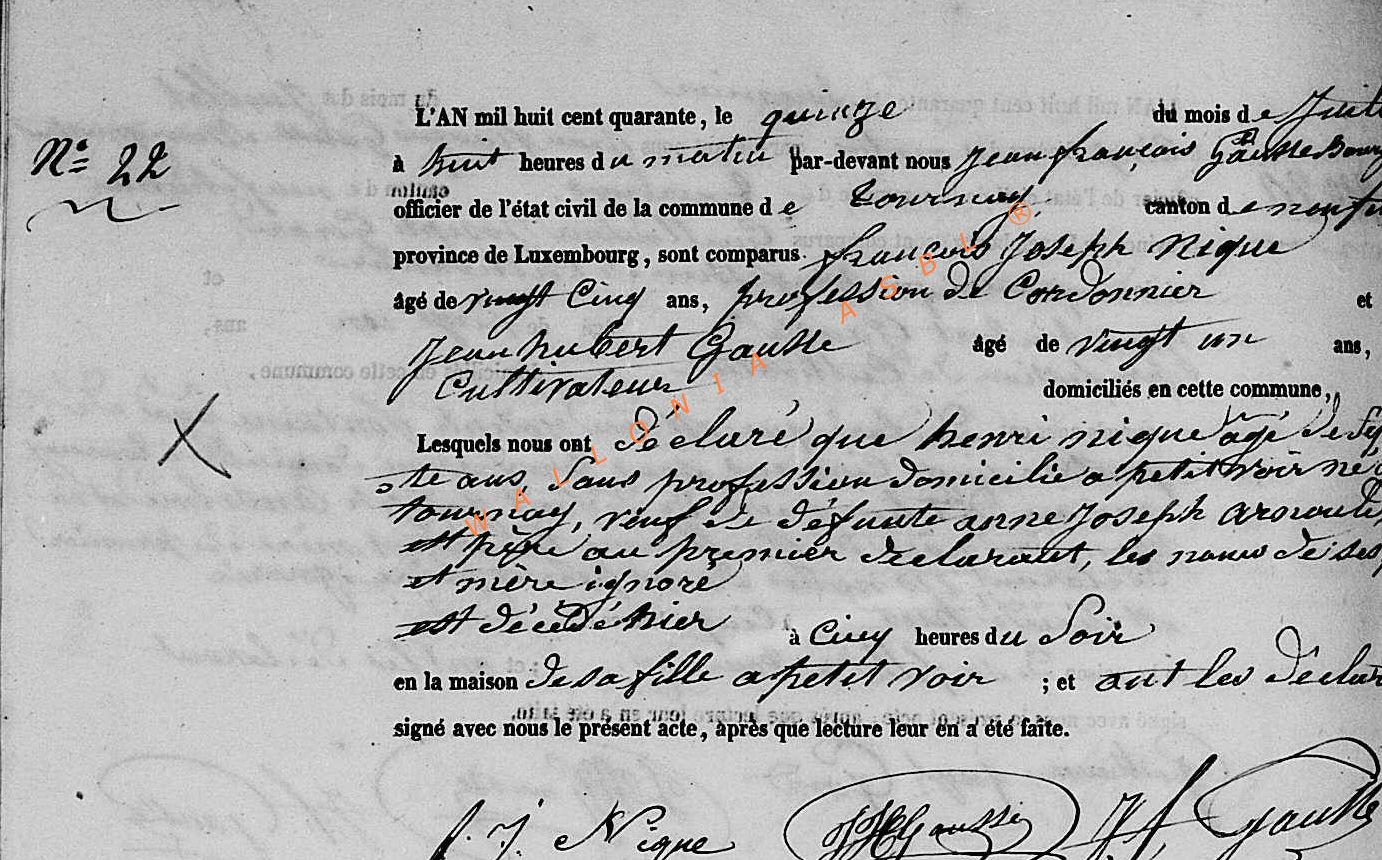 L'AN mil huit cent quarante, le quinze du mois de Juill
Nº 22
à huit heures du matin par-devant nous Jean françois Gausse Bourg
officier de l'état civil de la commune de tournay, canton de neufc
province de Luxembourg, sont comparus françois Joseph Nique
âgé de vingt Cinq ans, profession de Cordonnier et
Jean hubert Gausse âgé de vingt un ans,
Cultivateur domiciliés en cette commune,
Lesquels nous ont déclaré que henri nique âgé de Se
te ans, Sans profession domicilié a petit voir né
tournay, veuf de défunte anne Joseph arnould
est père au premier declarant, les noms de ses
et mère ignoré
est décédé hier à Cinq heures du Soir
en la maison de sa fille a petit voir ; et ont les déclar
signé avec nous le présent acte, après que lecture leur en a été faite.
f. J. Nique JHGausse J f Gausse
WALLONIA ASBL ®